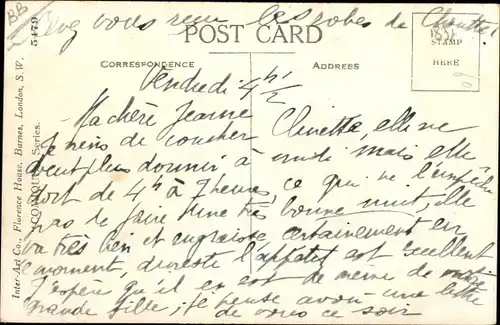 BB
Avez vous reçu les robes de Clinette
POST CARD
1832
STAMP
HERE
CORRESPONDENCE
ADDRESS
Vendredi 4h 1/2
Ma chère Jeanne
Je viens de coucher Clinette, elle ne
veut plus dormir à midi mais elle
dort de 4h à 7 heures, ce qui ne l'empêche
pas de faire une très bonne nuit, elle
va très bien et engraisse certainement en
ce moment, du reste l'appétit est excellent
J'espère qu'il en est de même de votre
grande fille; je pense avoir une lettre
de vous ce soir
5479
Inter-Art Co., Florence House, Barnes, London, S.W.
Series.